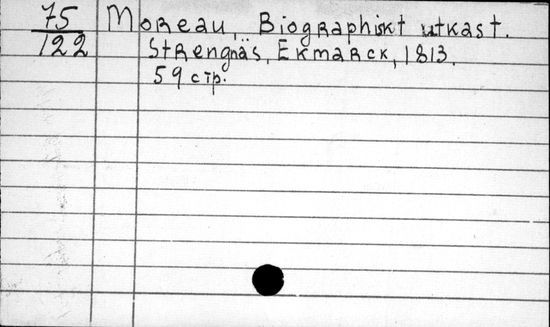 75/122 Moreau, Biographiskt utkast.
Strengnäs, Ekmarck, 1813.
59 стр.